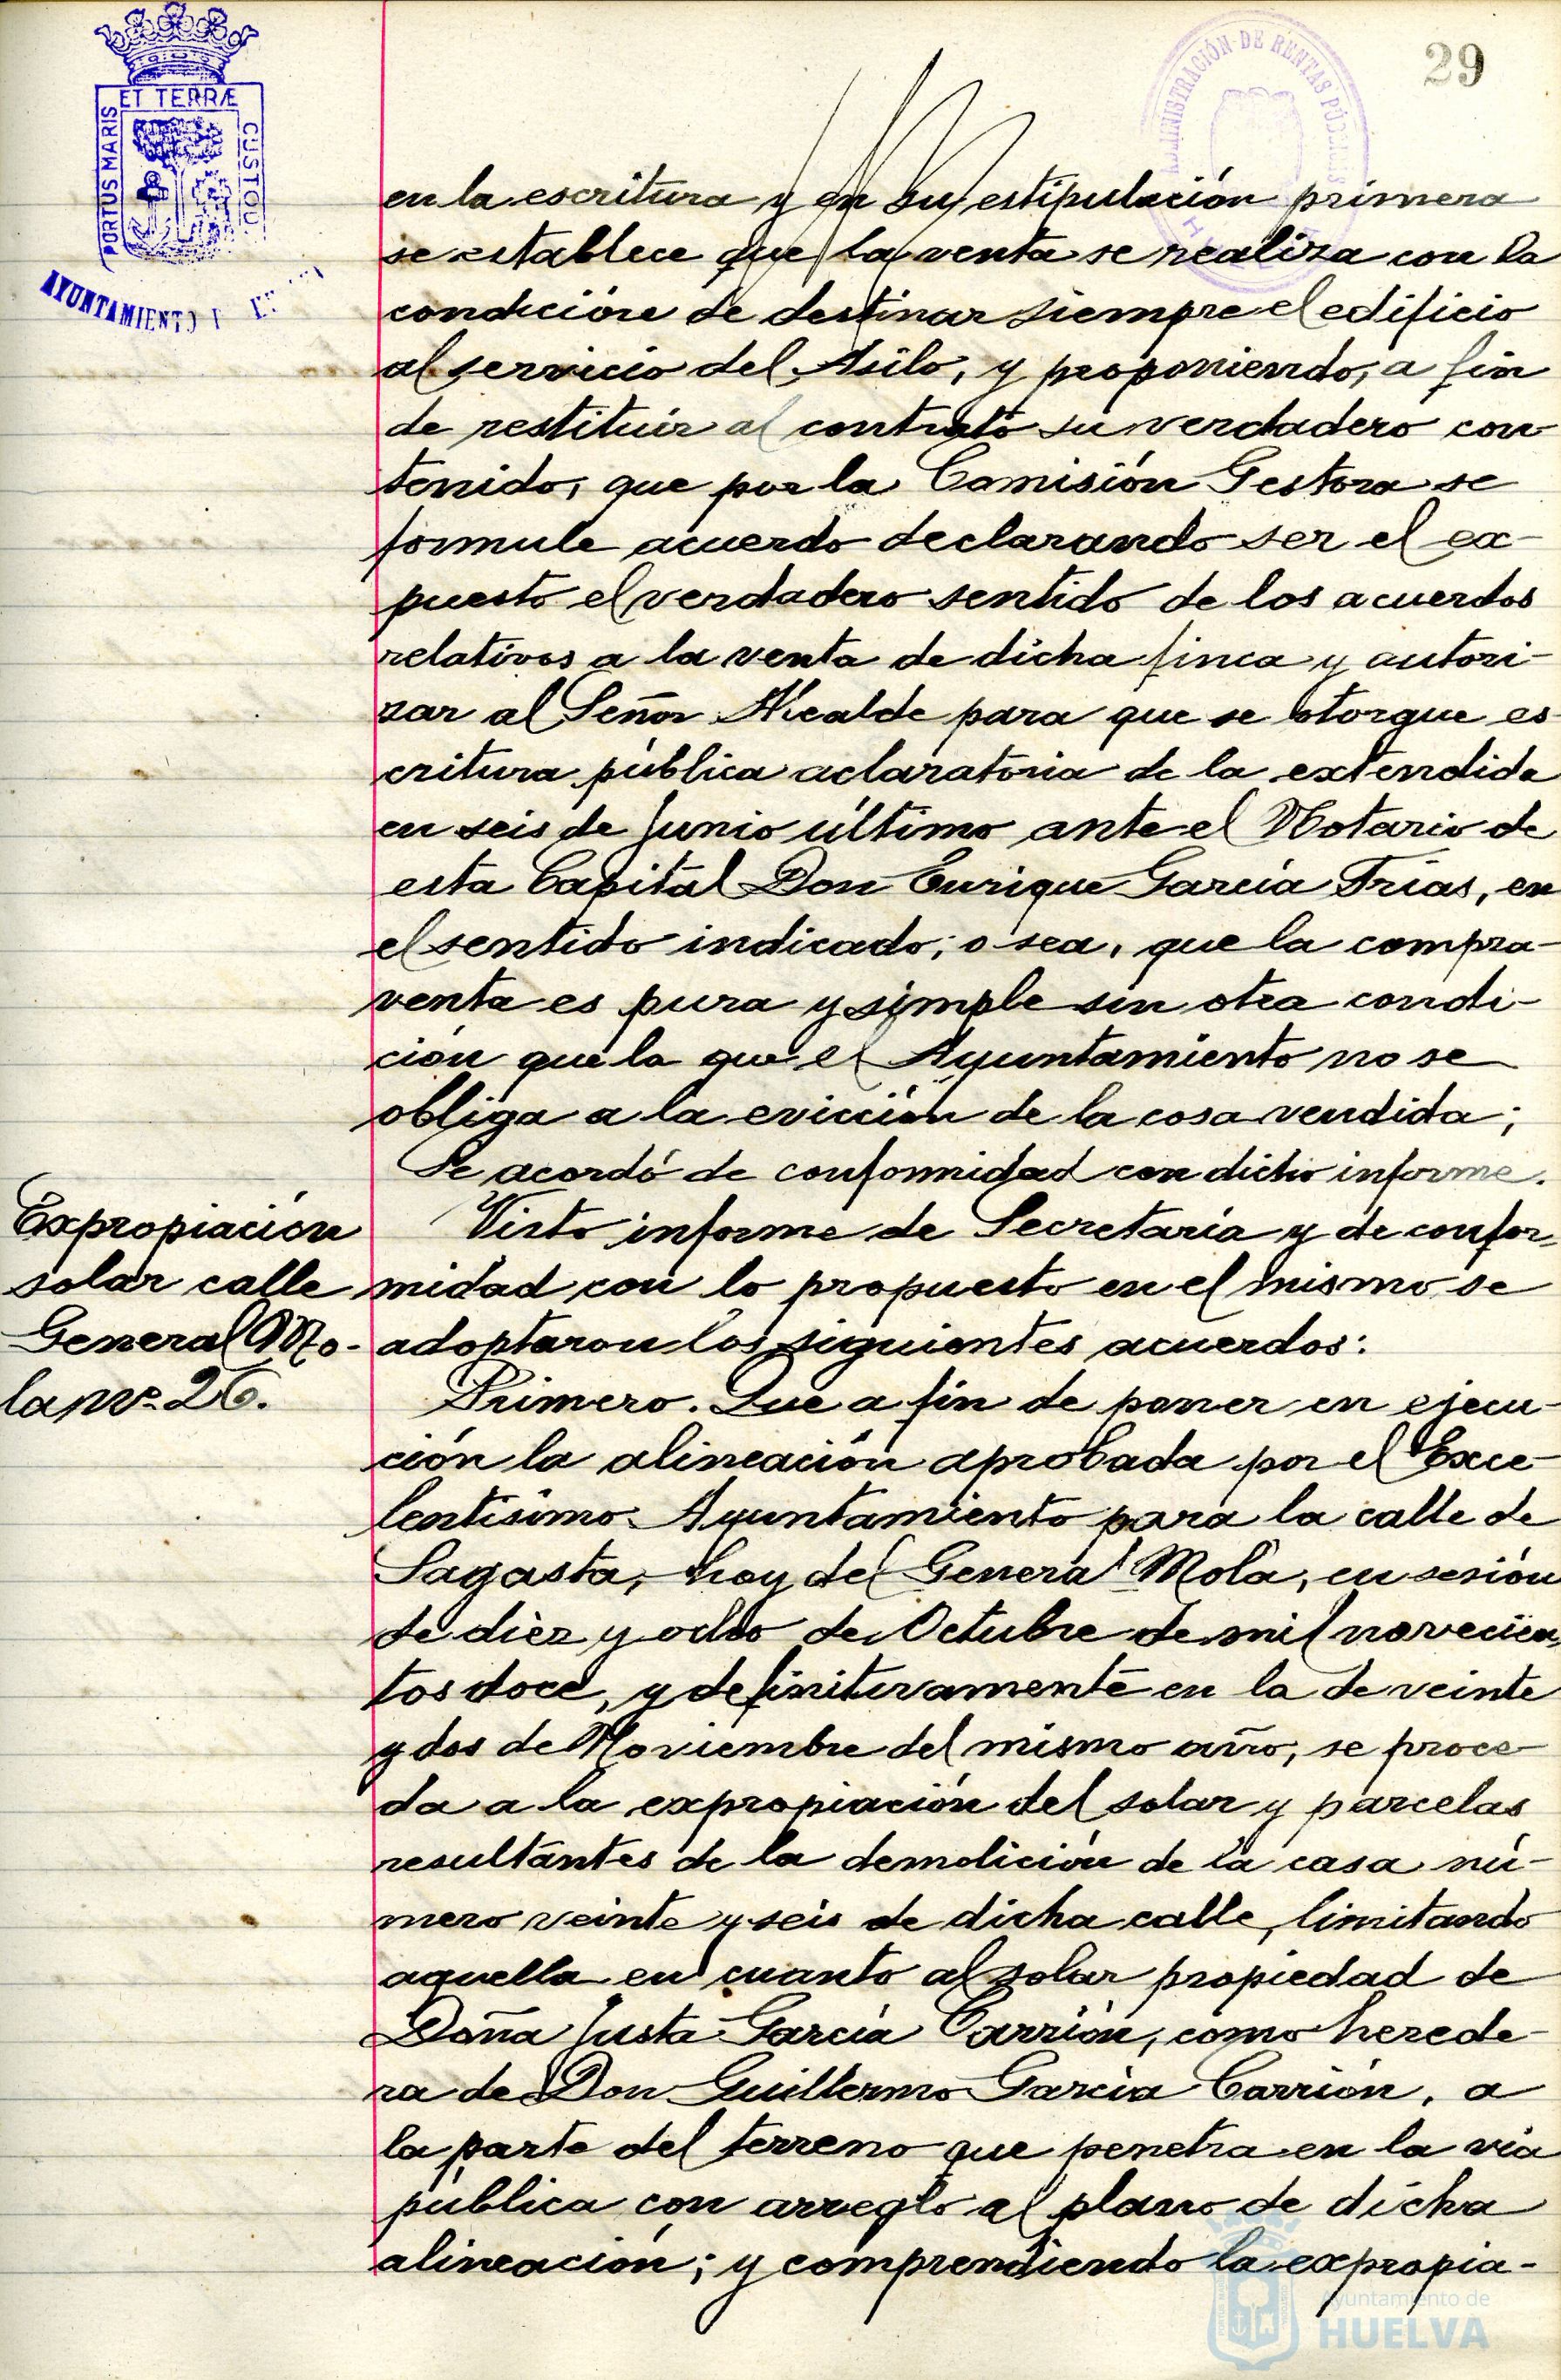 29
ET TERRÆ
PORTUS MARIS
CUSTOD
AYUNTAMIENTO
ADMINISTRACIÓN DE RENTAS PÚBLICAS
en la escritura y en su estipulación primera
se establece que la venta se realiza con la
condición de destinar siempre el edificio
al servicio del Asilo, y proponiendo, a fin
de restituir al contrato su verdadero con
tenido, que por la Comisión Gestora se
formule acuerdo declarando ser el ex-
puesto el verdadero sentido de los acuerdos
relativos a la venta de dicha finca y autori-
zar al Señor Alcalde para que se otorgue es-
critura pública aclaratoria de la extendida
en seis de Junio último ante el Notario de
esta Capital Don Enrique García Frías, en
el sentido indicado; o sea, que la compra-
venta es pura y simple sin otra condi-
ción que la que el Ayuntamiento no se
obliga a la evicción de la cosa vendida;
Se acordó de conformidad con dicho informe.
Expropiación
solar calle
General Mo-
la nº 26.
Visto informe de Secretaría y de confor-
midad con lo propuesto en el mismo se
adoptaron los siguientes acuerdos:
Primero. Que a fin de poner en ejecu-
ción la alineación aprobada por el Exce-
lentísimo Ayuntamiento para la calle de
Sagasta, hoy del General Mola, en sesión
de diez y ocho de Octubre de mil novecien-
tos doce, y definitivamente en la de veinte
y dos de Noviembre del mismo año, se proce-
da a la expropiación del solar y parcelas
resultantes de la demolición de la casa nú-
mero veinte y seis de dicha calle, limitando
aquella en cuanto al solar propiedad de
Doña Justa García Carrión, como herede-
ra de Don Guillermo García Carrión, a
la parte del terreno que penetra en la vía
pública con arreglo al plano de dicha
alineación; y comprendiendo la expropia-
Ayuntamiento de
HUELVA